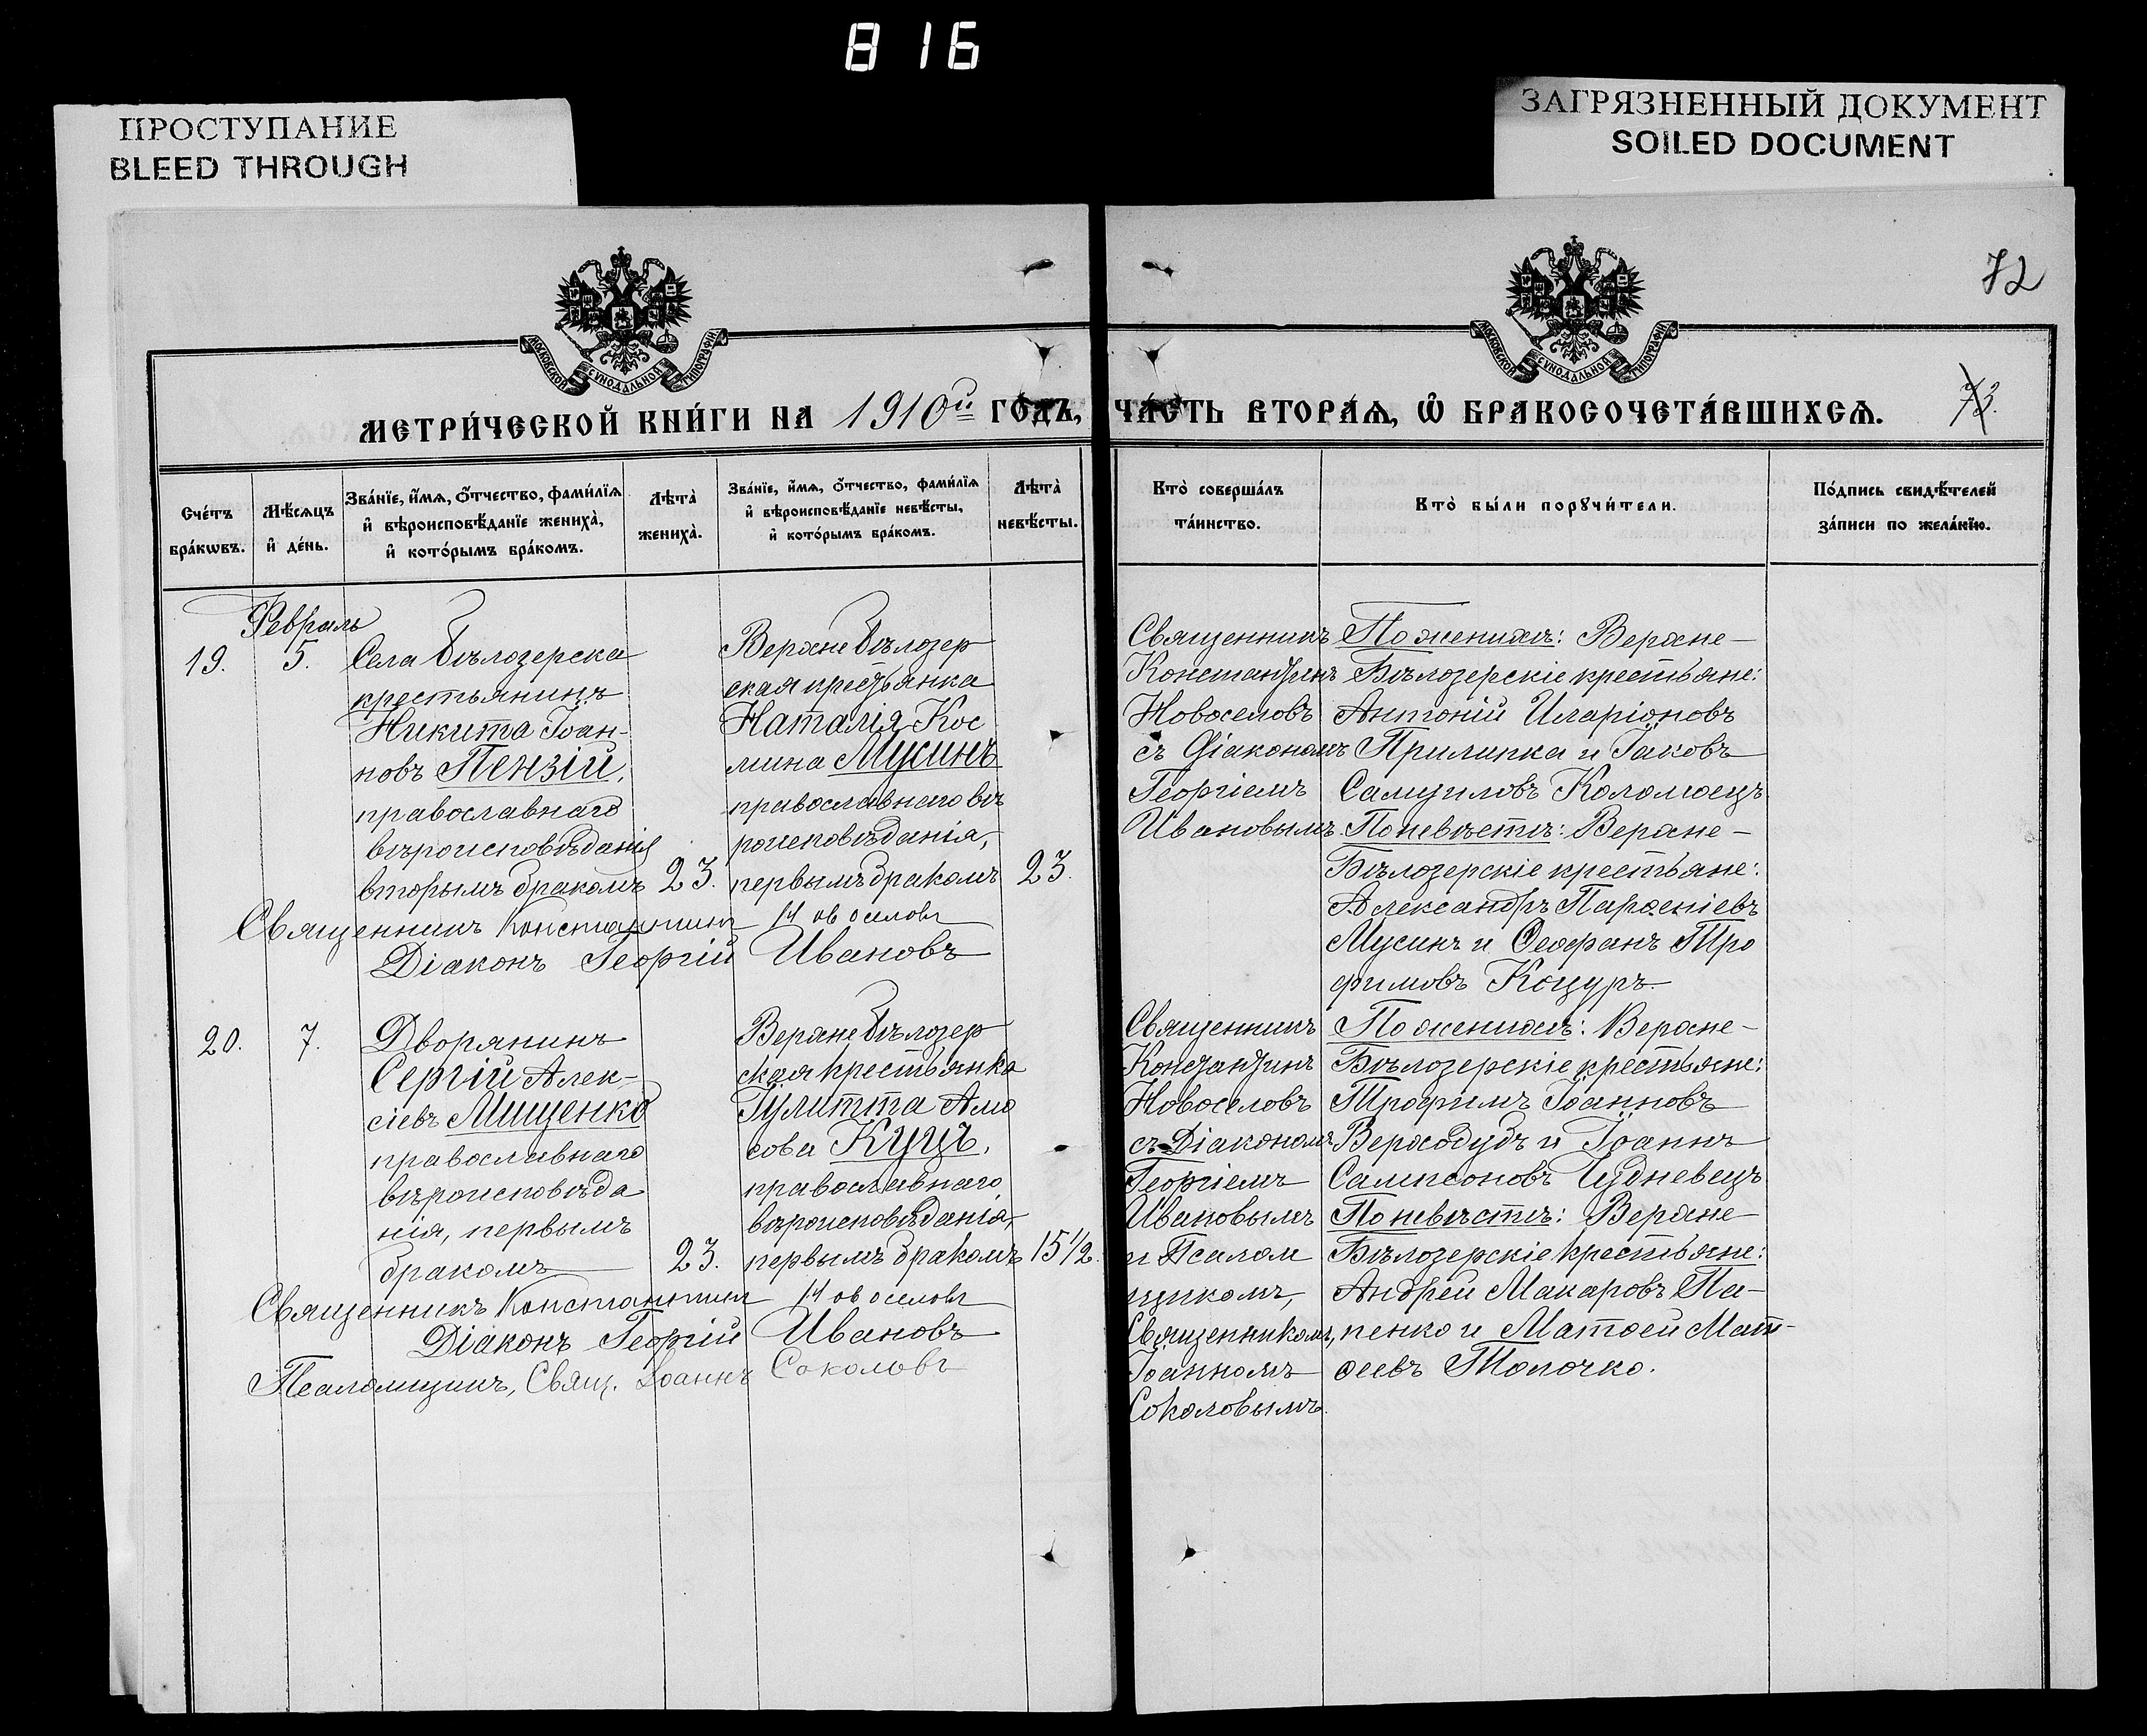 816
ПРОСТУПАНИЕ
BLEED THROUGH
ЗАГРЯЗНЕННЫЙ ДОКУМЕНТ
SOILED DOCUMENT
72
МОСКОВСКОЙ СѴНОДАЛЬНОЙ ТИПОГРАФІИ
МОСКОВСКОЙ СѴНОДАЛЬНОЙ ТИПОГРАФІИ
МЕТРИ́ЧЕСКОЙ КНИ́ГИ НА 1910й ГО́ДЪ, ЧА́СТЬ ВТОРА́Я, Ѡ҆ БРАКОСОЧЕТА́ВШИХСѦ.
73.
Сче́тъ
бра́кѡвъ.
Мѣ́сѧцъ
и҆ де́нь.
Зва́нїе, и҆́мѧ, ѻ҆́тчество, фами́лїѧ
и҆ вѣроисповѣ́данїе жениха̀,
и҆ кото́рымъ бра́комъ.
Лѣта̀
жениха̀.
Зва́нїе, и҆́мѧ, ѻ҆́тчество, фами́лїѧ
и҆ вѣроисповѣ́данїе невѣ́сты,
и҆ кото́рымъ бра́комъ.
Лѣта̀
невѣ́сты.
Кто̀ соверша́лъ
та́инство.
Кто̀ бы́ли порꙋчи́тели.
По́дпись свидѣ́телей
за́писи по жела́нїю.
Февраль
19.
5.
Села Бѣлозерска
крестьянинъ
Никита Іоан-
новъ Пензій,
православнаго
вѣроисповѣданія
вторымъ бракомъ
23.
Верхне Бѣлозер
ская крестьянка
Наталія Кос
мина Мусинъ
православнаго вѣ
роисповѣданія,
первымъ бракомъ
23.
Священникъ
Константинъ
Новоселовъ
съ Діакономъ
Георгіемъ
Ивановымъ.
По женихѣ: Верхне-
Бѣлозерскіе крестьяне:
Антоній Иларіоновъ
Прилипка и Іаковъ
Самуиловъ Коломоецъ
По невѣстѣ: Верхне-
Бѣлозерскіе крестьяне:
Александръ Парѳеніевъ
Мусинъ и Ѳеофанъ Тро
фимовъ Коцуръ
Священникъ Константинъ Новоселовъ
Діаконъ Георгій Ивановъ
20.
7.
Дворянинъ
Сергій Алек-
сіевъ Мищенко
православнаго
вѣроисповѣда
нія, первымъ
бракомъ
23.
Верхне Бѣлозер
ская крестьянка
Іулитта Амо
сова Куцъ,
православнаго
вѣроисповѣданія,
первымъ бракомъ
15 1/2.
Священникъ
Константинъ
Новоселовъ
съ Діакономъ
Георгіемъ
Ивановымъ
и Псалом
щикомъ,
Священникомъ,
Іоанномъ
Соколовымъ.
По женихѣ: Верхне-
Бѣлозерскіе крестьяне:
Трофимъ Іоанновъ
Верходубъ и Іоаннъ
Сампсоновъ Чудневецъ
По невѣстѣ: Верхне
Бѣлозерскіе крестьяне:
Андрей Макаровъ Па-
пенко и Матѳей Мат-
ѳеевъ Толочко.
Священникъ Константинъ Новоселовъ
Діаконъ Георгій Ивановъ
Псаломщикъ, Свящ. Іоаннъ Соколовъ